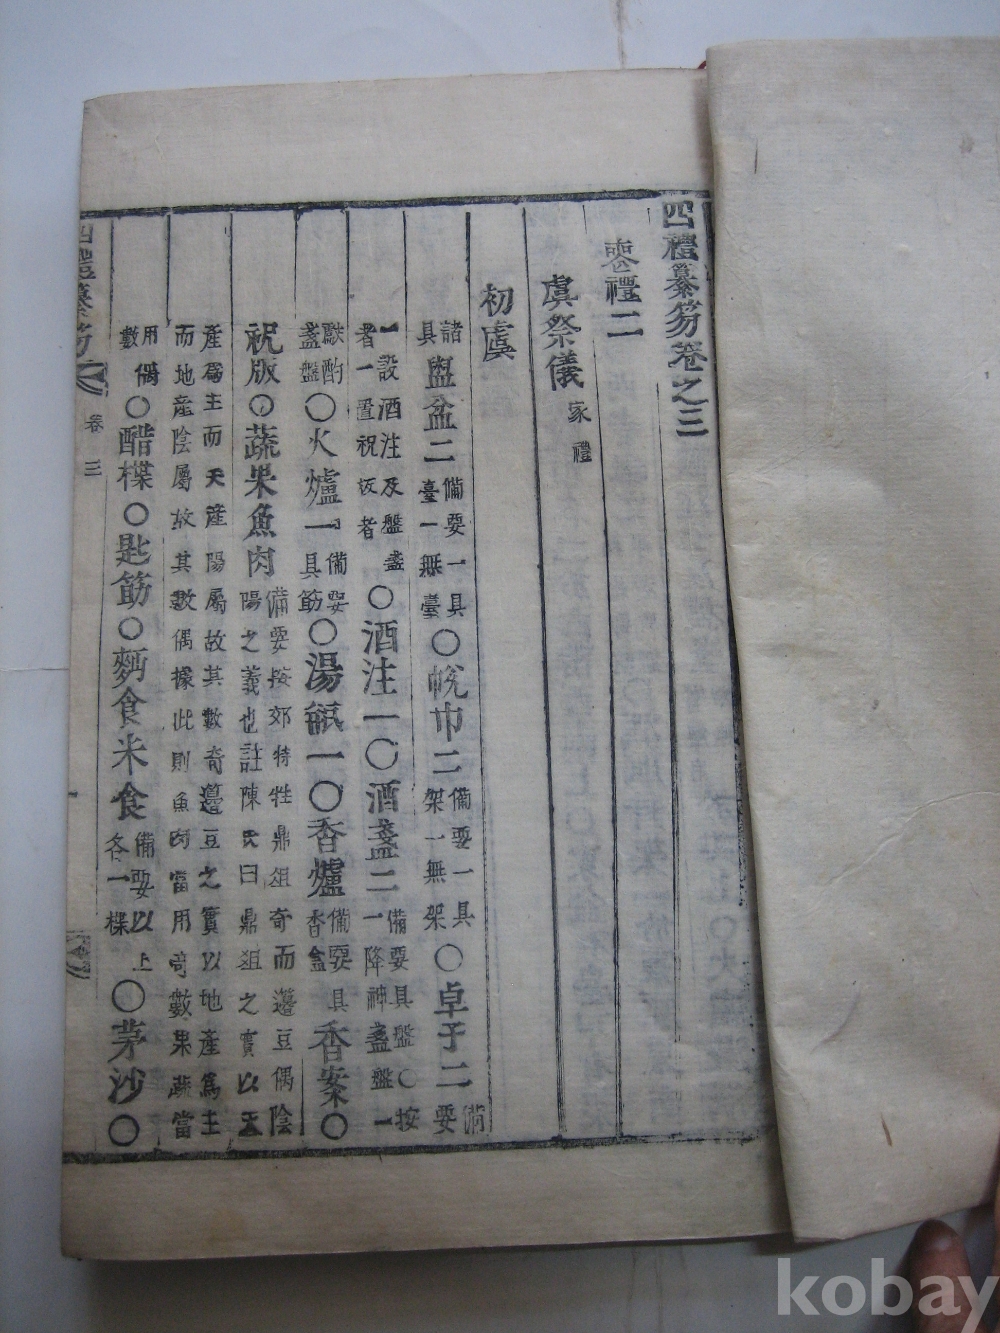 四禮纂笏卷之三
喪禮二
虞祭儀 家禮
初虞
諸具 盥盆二 備要一具臺一無臺 ○帨巾二 備要一具架一無架 ○卓子二 備要
一設酒注及盤盞者一置祝板者 ○酒注一○酒盞二 備要具盤○按一降神盞盤一
獻酌盞盤 ○火爐一 備要具筯 ○湯瓶一○香爐 備要具香盒 香案○
祝版○蔬果魚肉 備要按郊特牲鼎俎奇而籩豆偶陰陽之義也註陳氏曰鼎俎之實以天
產爲主而天產陽屬故其數奇籩豆之實以地產爲主而地產陰屬故其數偶據此則魚肉當用奇數果蔬當
用偶數 ○醋楪○匙筯○麪食米食 備要以上各一楪 ○茅沙○
四禮纂笏 卷三
kobay